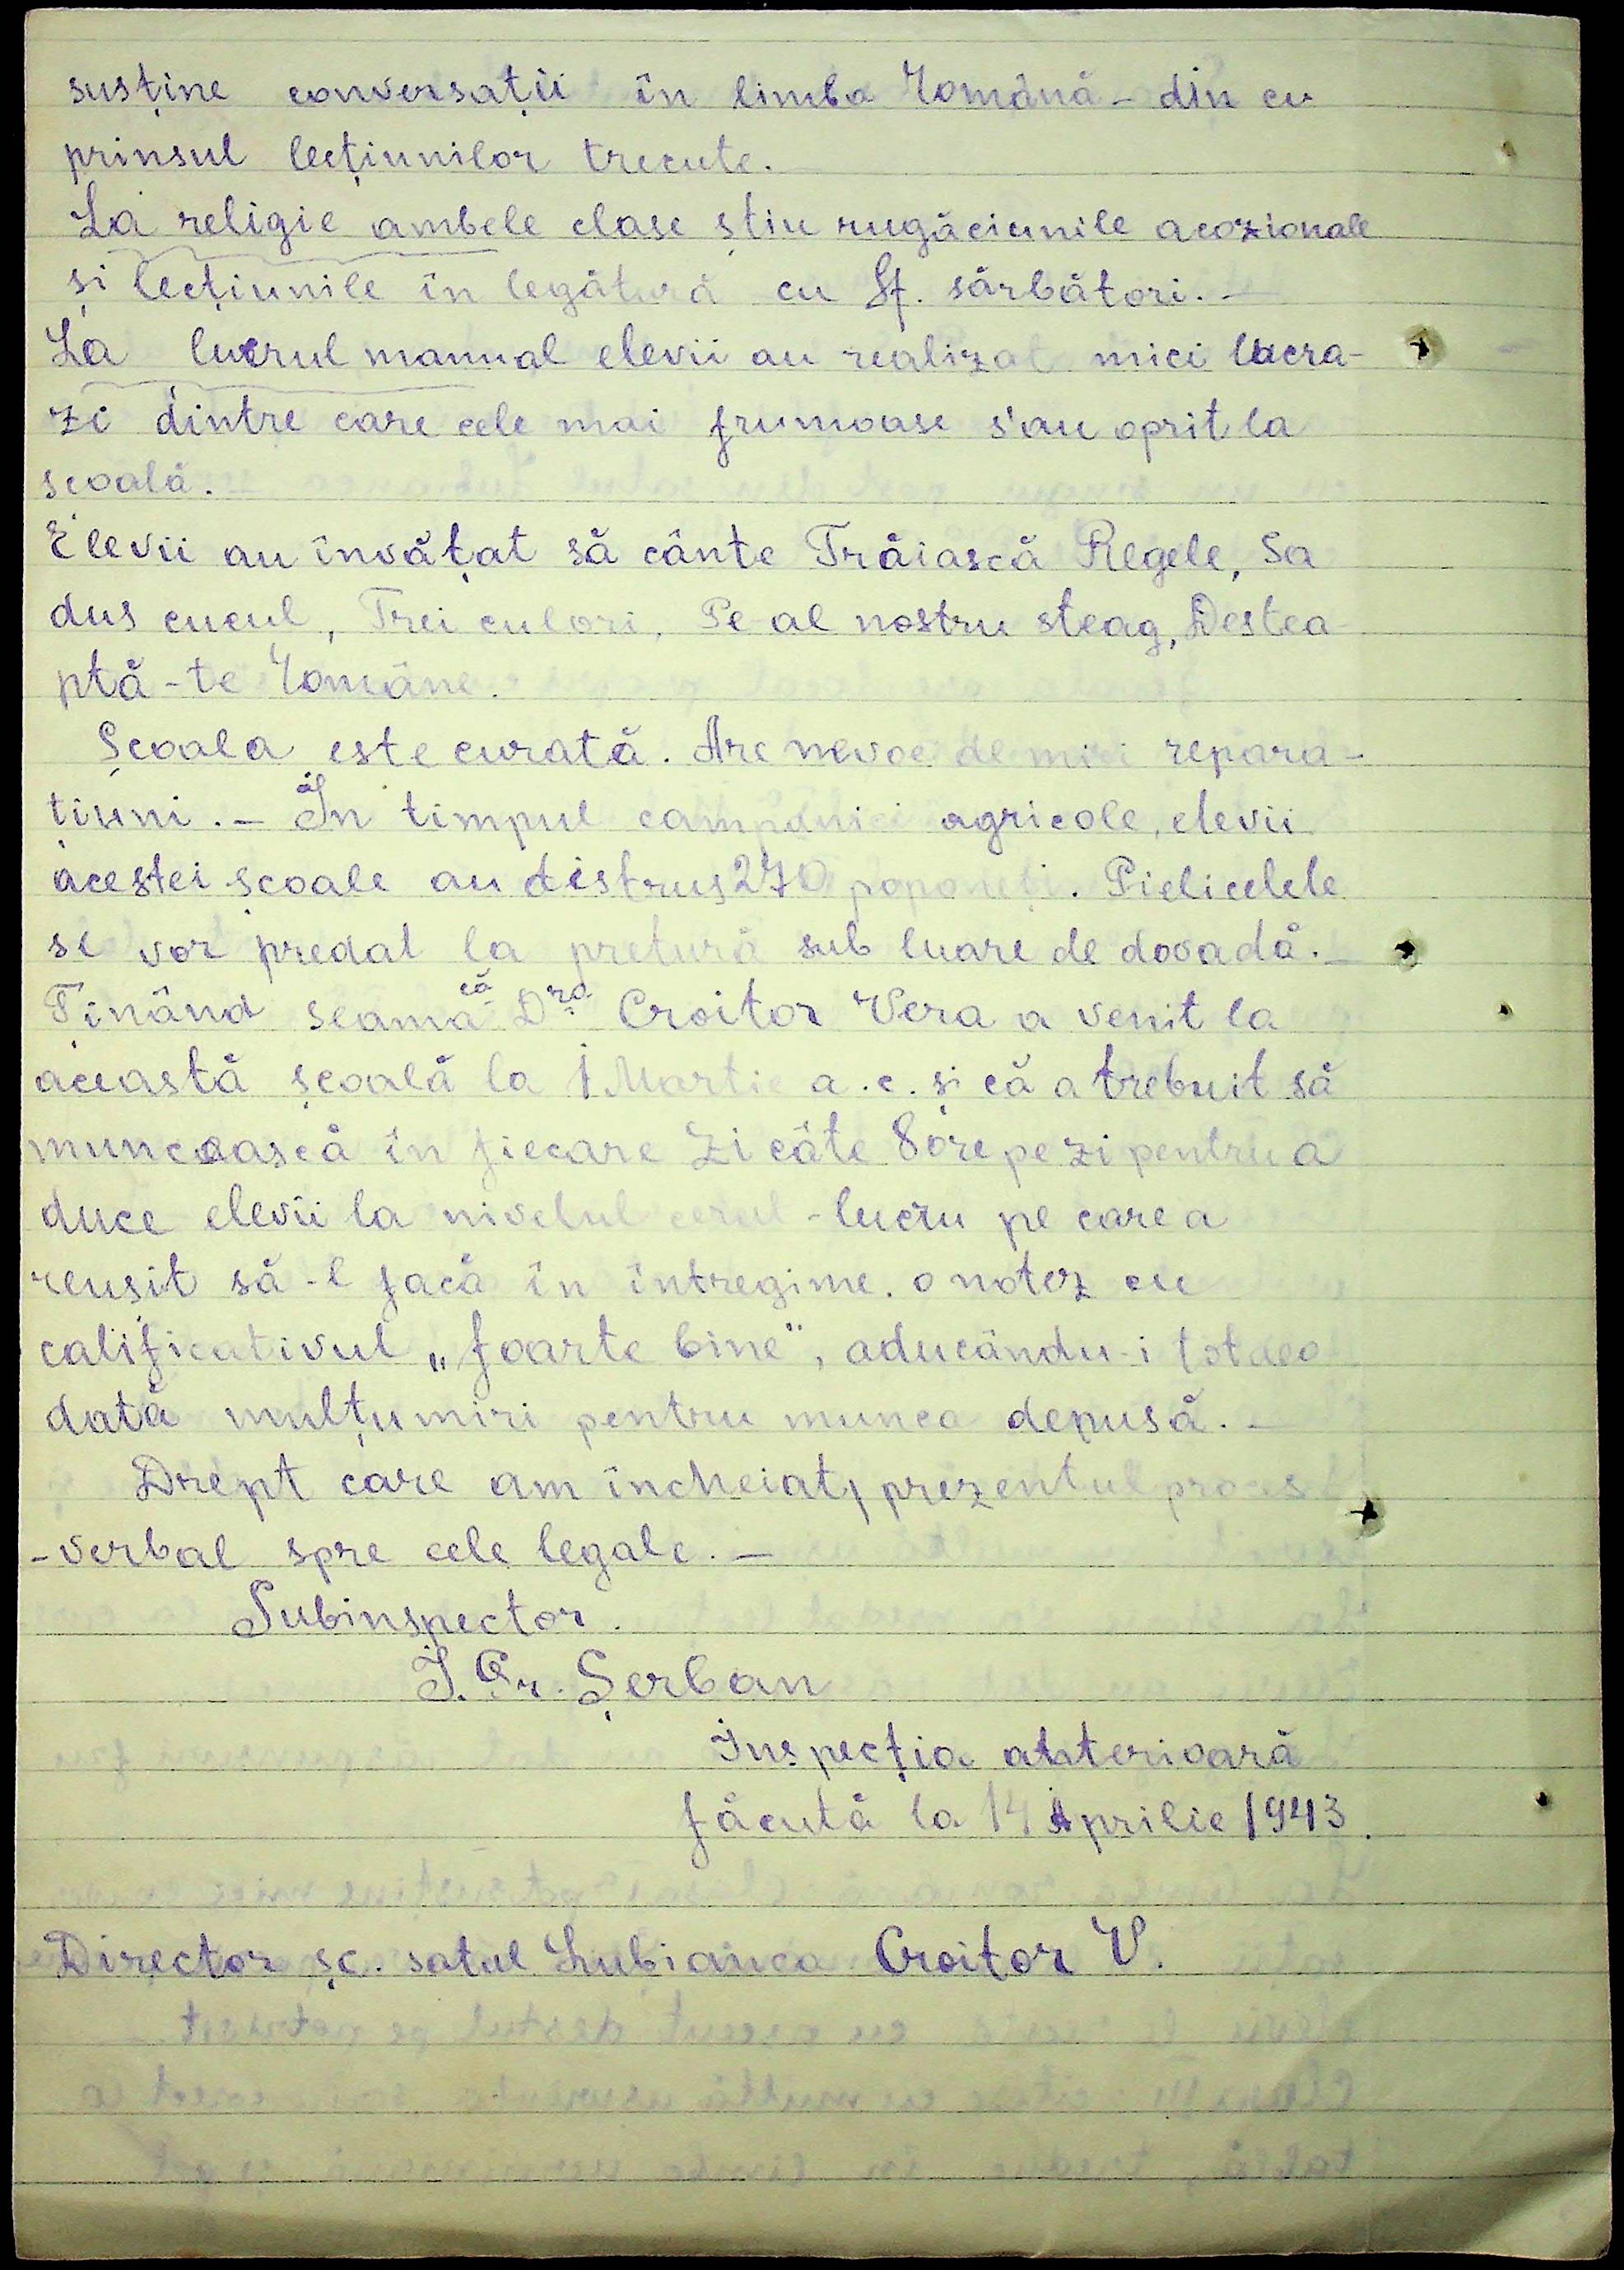 susține conversații în limba Română – din cu
prinsul lecțiunilor trecute.
La religie ambele clase știu rugăciunile acozionale
și lecțiunile în legătură cu Sf. sărbători. –
La lucrul manual elevii au realizat mici lucra-
zi dintre care cele mai frumoase s'au oprit la
școală.
Elevii au învățat să cânte Trăiască Regele, Sa
dus cucul, Trei culori, Pe al nostru steag, Destea
ptă-te Române.
Școala este curată. Are nevoe de mici repara-
țiuni. – În timpul campaniei agricole, elevii
acestei școale au distrus 270 poponeți. Pielicelele
se vor predat la pretură sub luare de dovadă. –
Ținând seama că D ra Croitor Vera a venit la
această școală la 1 Martie a.c. și că a trebuit să
muncească în fiecare zi câte 8 ore pe zi pentru a
duce elevii la nivelul cerut – lucru pe care a
reușit să-l facă în întregime. o notez cu
calificativul „foarte bine", aducându-i totdeo
dată mulțumiri pentru munca depusă. –
Drept care am încheiat, prezentul proces
-verbal spre cele legale. –
Subinspector.
I. Gr. Șerban
Inspecția anterioară
făcută la 14 Aprilie 1943.
Director șc. satul Lubianca Croitor V.